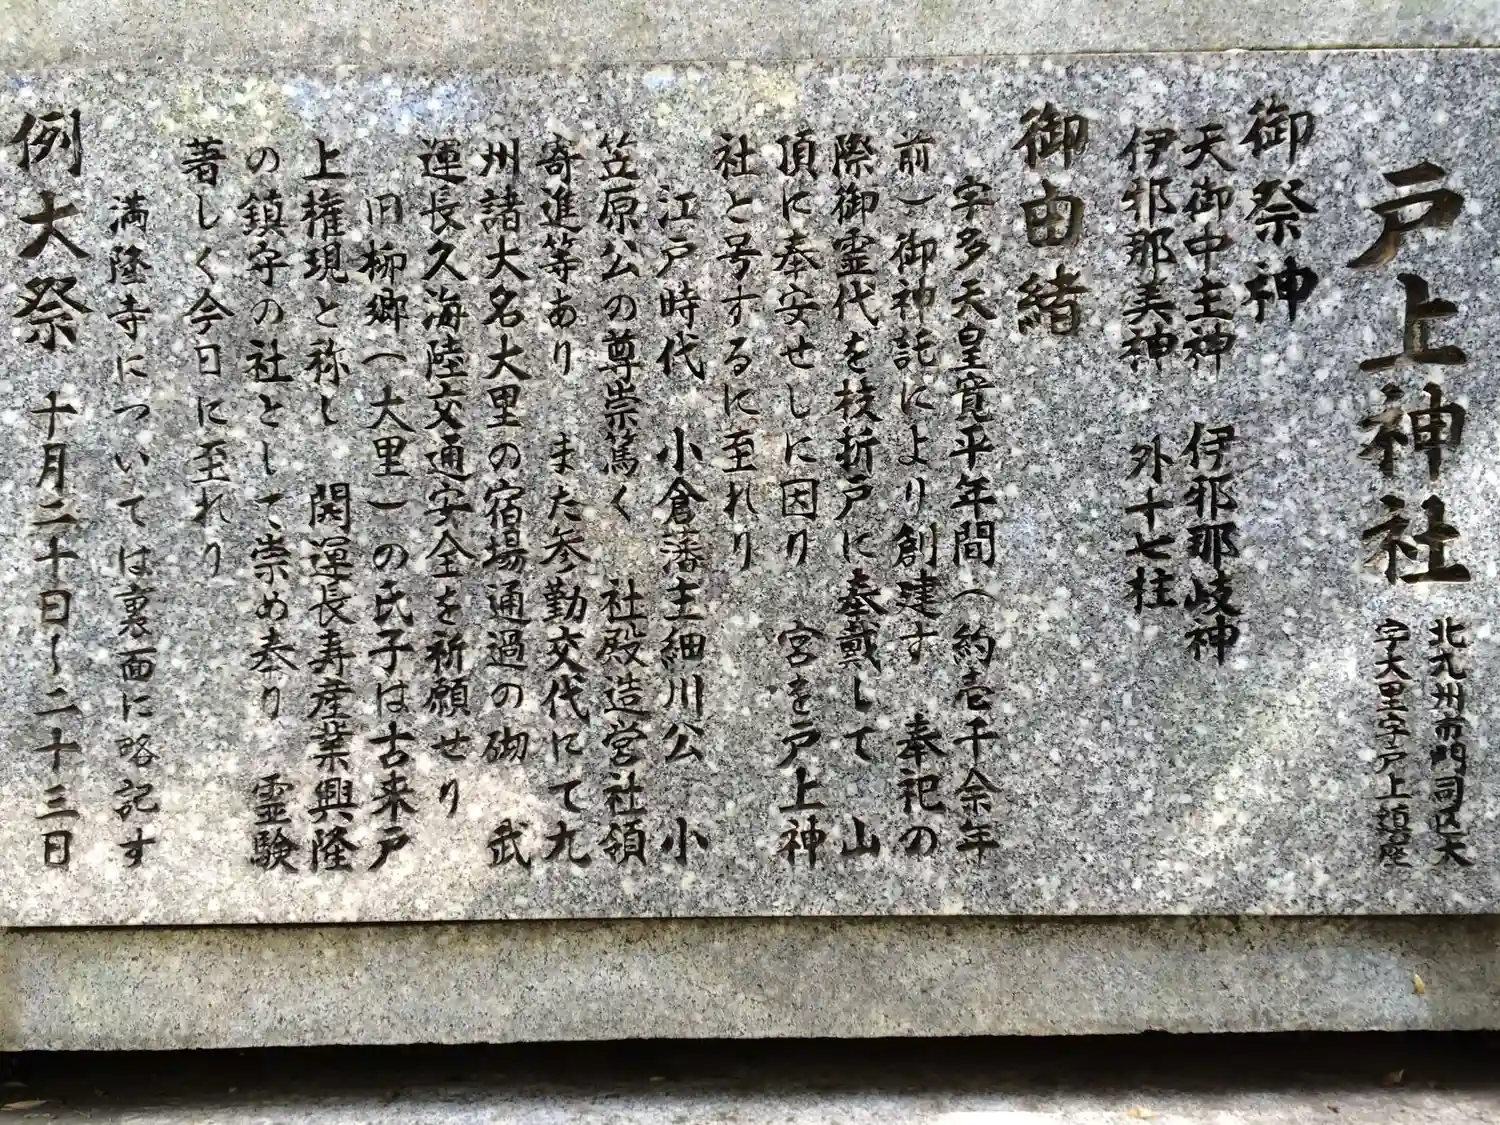 戸上神社
北九州市門司区大
字大里字戸上頂座
御祭神
天御中主神　伊邪那岐神
伊邪那美神　外十七柱
御由緒
宇多天皇寛平年間（約壱千余年
前）御神託により創建す　奉祀の
際御霊代を枝折戸に奉戴して　山
頂に奉安せしに因り　宮を戸上神
社と号するに至れり
江戸時代　小倉藩主細川公　小
笠原公の尊崇篤く　社殿造営社領
寄進等あり　また参勤交代にて九
州諸大名大里の宿場通過の砌　武
運長久海陸交通安全を祈願せり
旧柳郷（大里）の氏子は古来戸
上権現と称し　開運長寿産業興隆
の鎮守の社として崇め奉り　霊験
著しく今日に至れり
満隆寺については裏面に略記す
例大祭　十月二十日〜二十三日